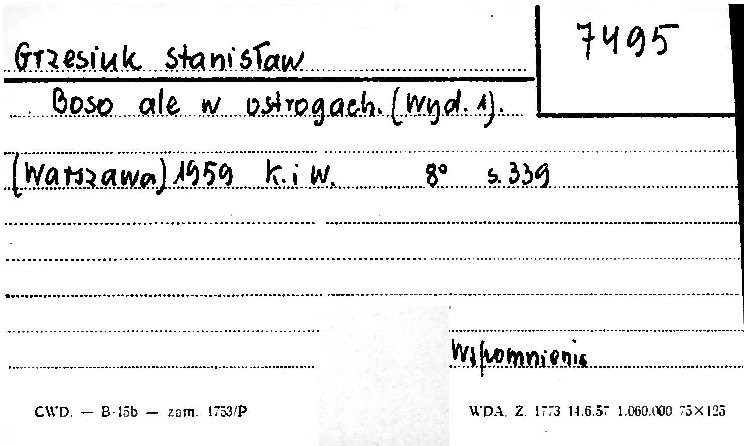 7495
Grzesiuk Stanisław
Boso ale w ostrogach. (Wyd. 1).
(Warszawa) 1959 K. i W. 8° s. 339
Wspomnienia
CWD. — B-15b — zam. 1753/P
WDA. Z. 1773 14.6.57 1.060.000 75×125